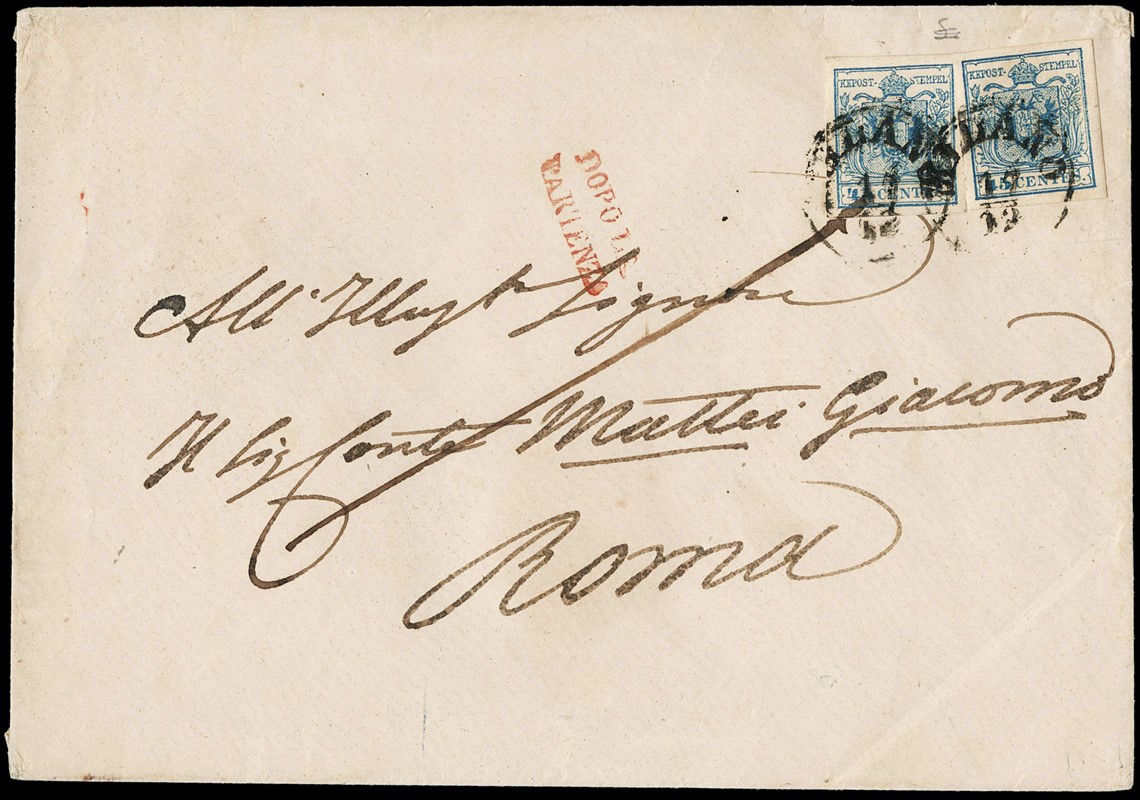 KKPOST- STEMPEL KKPOST- STEMPEL
MILANO
45 CENTES. 45 CENTES.
17
12
DOPO LE
PARTENZE
All' Illus.r Signore
Il Sig Conte Mattei Giacomo
Roma